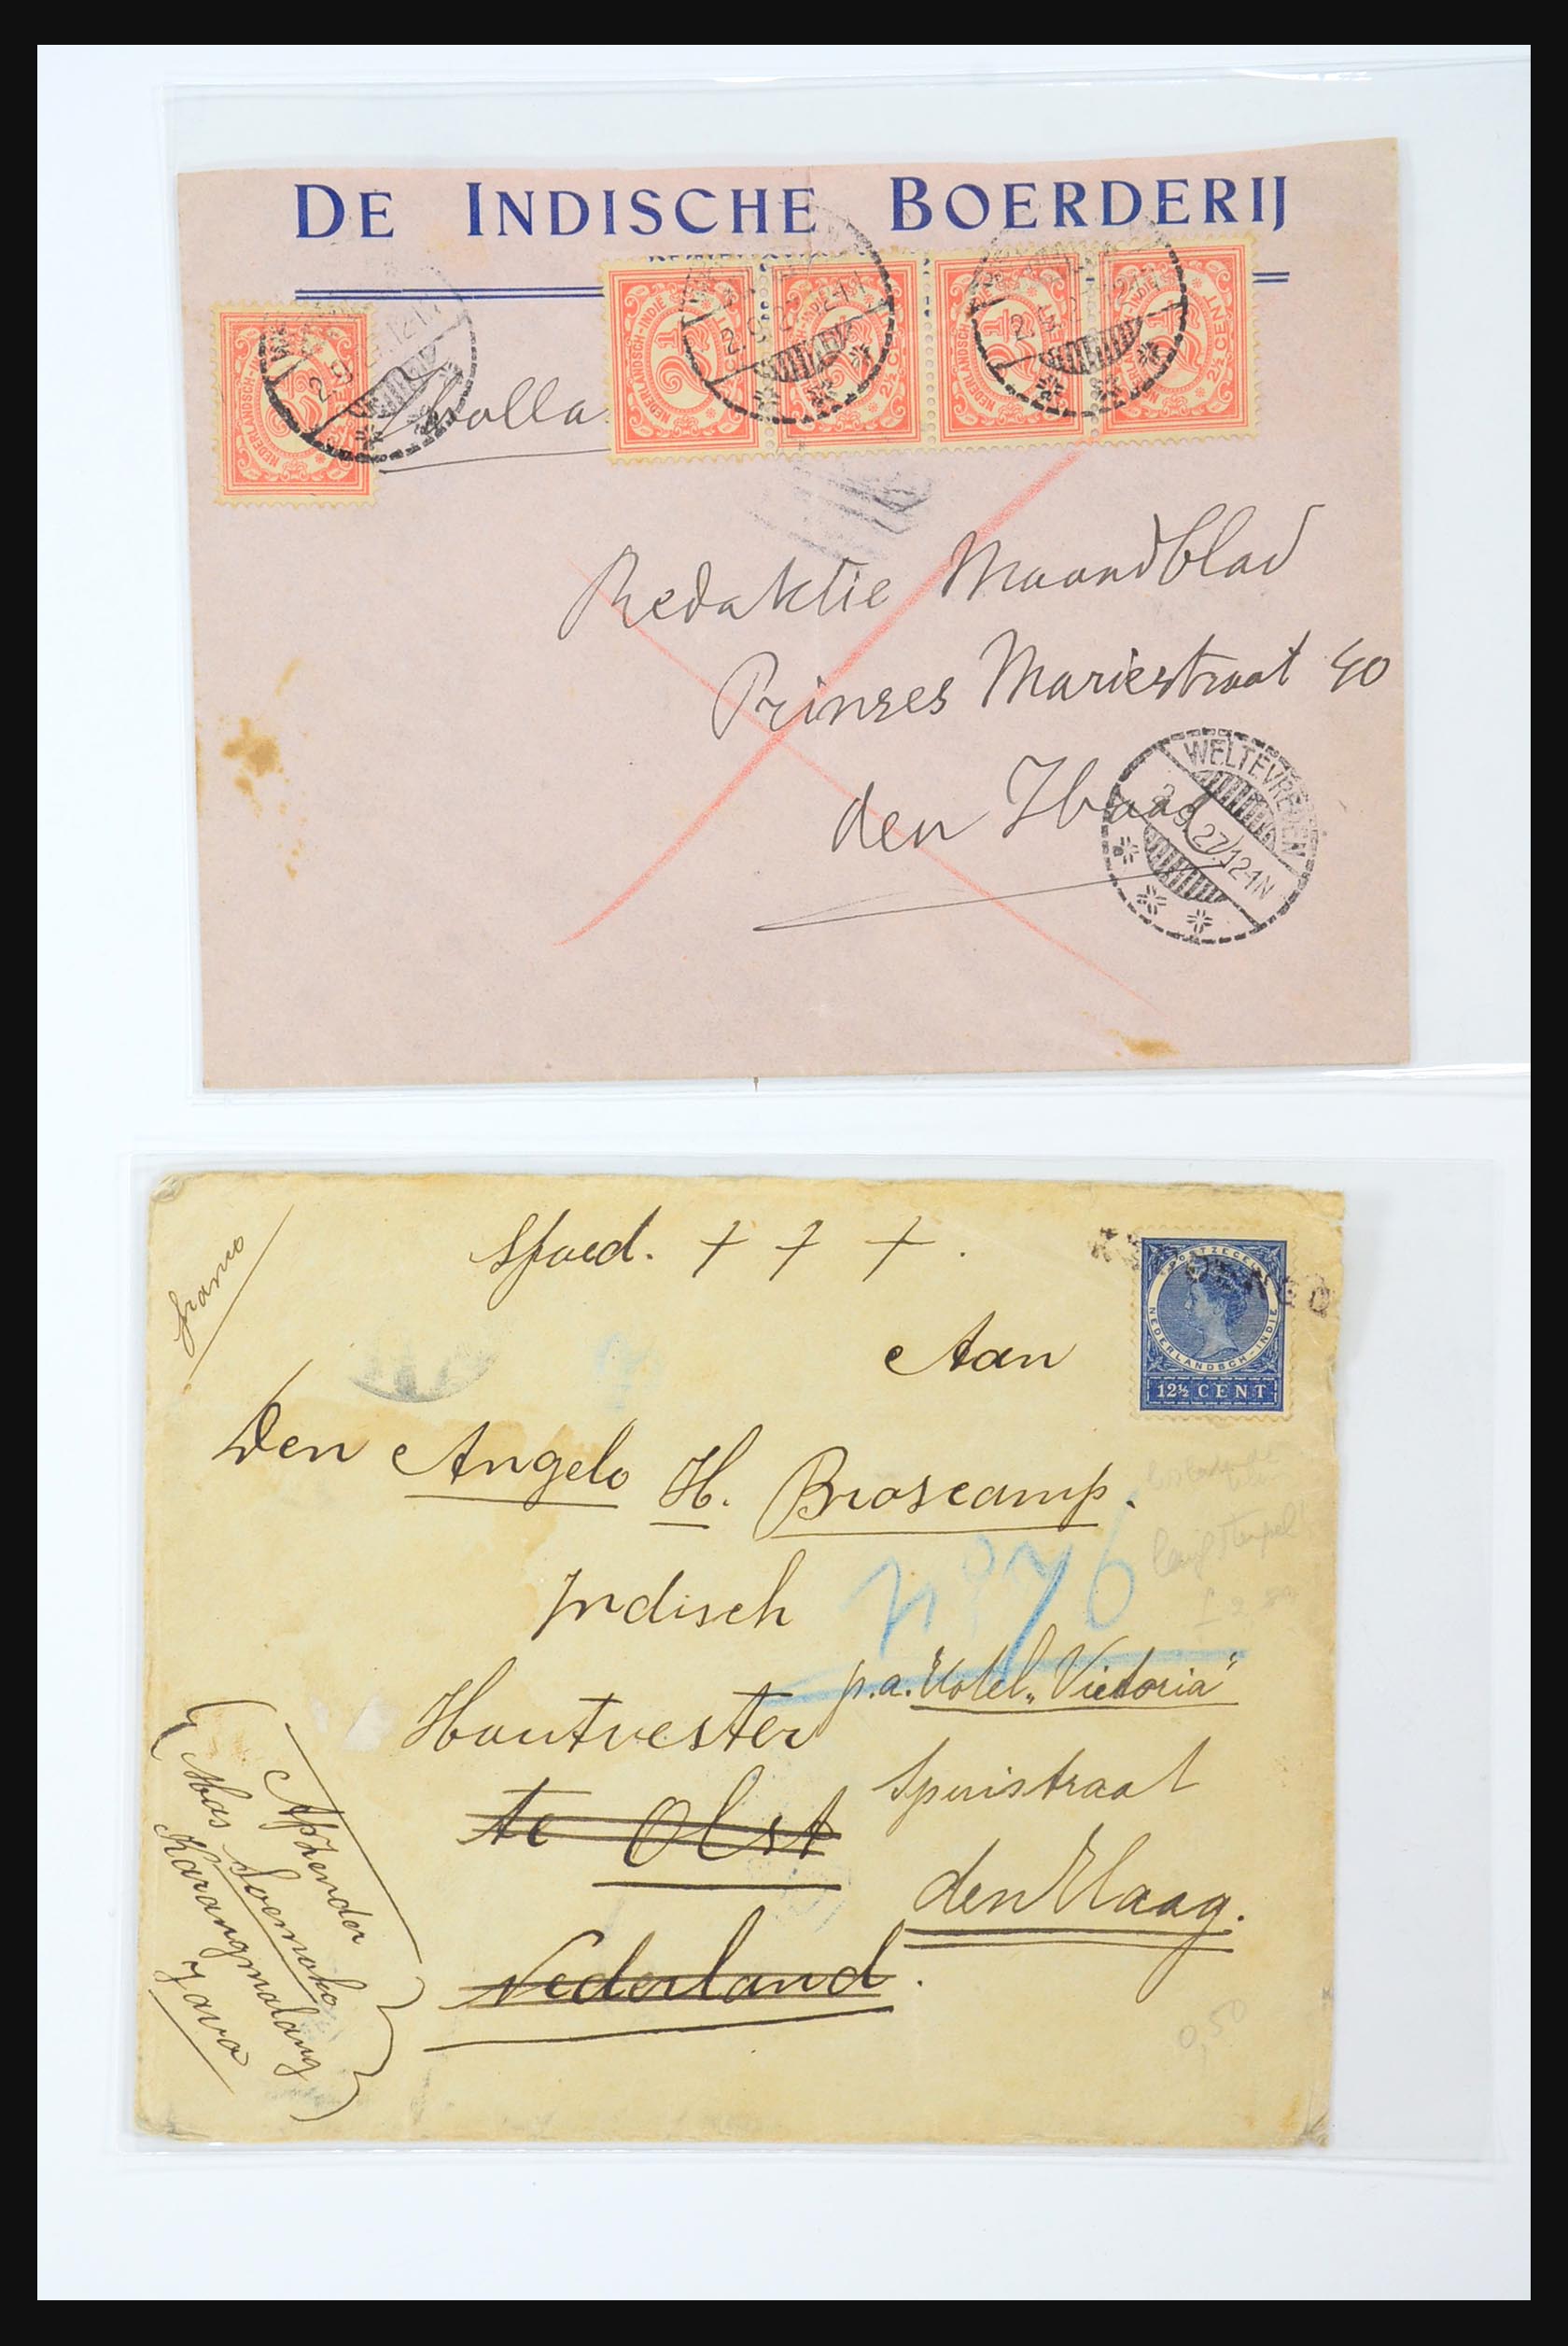 DE INDISCHE BOERDERIJ
NEDERLANDSCH-INDIE
2½ CENT
Holla
Redaktie Maandblad
Prinses Mariestraat 40
den Haag
WELTEVREDEN
2.9.27.12-1N
franco
Spoed. + + +.
Aan
POSTZEGEL
NEDERLANDSCH-INDIE
12½ CENT
Den Angelo H. Broscamp.
Indisch
n° 76
Houtvester
p.a. Hotel „Victoria"
te Olst
Spuistraat
den Haag.
Nederland.
Afzender
Mas Soemoko
Karangmalang
Java
0,50